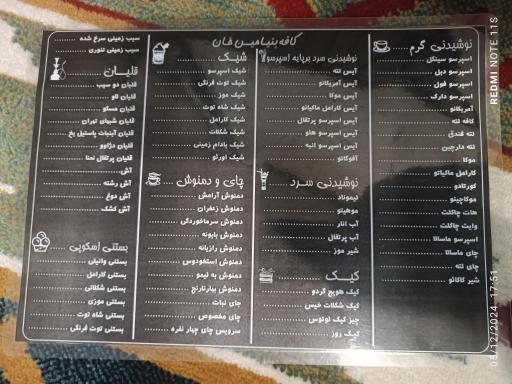 کافه بنیامین خان
نوشیدنی گرم
اسپرسو سینگل
اسپرسو دبل
اسپرسو فول
اسپرسو دارک
آمریکانو
کافه لته
لته فندق
لته دارچین
موکا
کارامل ماکیاتو
کورتادو
موکاچینو
هات چاکلت
وایت چاکلت
اسپرسو ماسالا
چای ماسالا
چای لته
شیر کاکائو
نوشیدنی سرد برپایه اسپرسو
آیس لته
آیس آمریکانو
آیس موکا
آیس کارامل ماکیاتو
آیس اسپرسو پرتقال
آیس اسپرسو هلو
آیس اسپرسو انبه
آفوگاتو
نوشیدنی سرد
لیموناد
موهیتو
آب انار
آب پرتقال
شیر موز
کیک
کیک هویج گردو
کیک شکلات خیس
چیز کیک لوتوس
کیک روز
شیک
شیک اسپرسو
شیک توت فرنگی
شیک موز
شیک شاه توت
شیک کارامل
شیک شکلات
شیک بادام زمینی
شیک اورئو
چای و دمنوش
دمنوش آرامش
دمنوش زعفران
دمنوش سرماخوردگی
دمنوش بابونه
دمنوش رازیانه
دمنوش اسطخودوس
دمنوش به لیمو
دمنوش بهارنارنج
چای نبات
چای مخصوص
سرویس چای چهار نفره
سیب زمینی سرخ شده
سیب زمینی تنوری
قلیان
قلیان دو سیب
قلیان لاو
قلیان مسکو
قلیان شبهای تهران
قلیان آدنبات پاستیل یخ
قلیان دژاوو
قلیان پرتقال نعنا
آش
آش رشته
آش دوغ
آش کشک
بستنی اسکوپی
بستنی وانیلی
بستنی کارامل
بستنی شکلاتی
بستنی موزی
بستنی شاه توت
بستنی توت فرنگی
REDMI NOTE 11S
05/12/2024 17:51